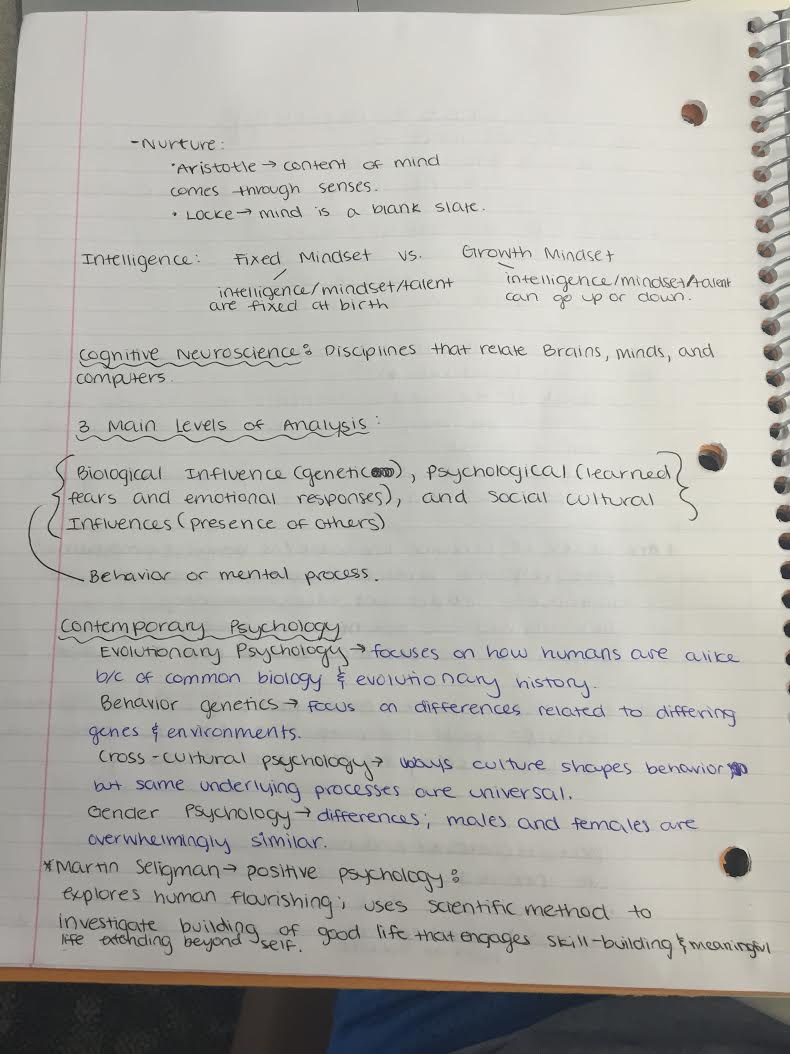 -Nurture:
•Aristotle → content of mind
comes through senses.
• Locke → mind is a blank slate.
Intelligence: Fixed Mindset vs. Growth Mindset
intelligence/mindset/talent intelligence/mindset/talent
are fixed at birth can go up or down.
Cognitive Neuroscience: Disciplines that relate Brains, minds, and
computers.
3 Main Levels of Analysis:
{Biological Influence (genetic), Psychological (learned
fears and emotional responses), and social cultural
Influences (presence of others)}
Behavior or mental process.
Contemporary Psychology
Evolutionary Psychology → focuses on how humans are alike
b/c of common biology & evolutionary history.
Behavior genetics → focus on differences related to differing
genes & environments.
Cross-cultural psychology → ways culture shapes behavior
but same underlying processes are universal.
Gender Psychology → differences; males and females are
overwhelmingly similar.
*Martin Seligman → positive psychology:
explores human flourishing; uses scientific method to
investigate building of good life that engages skill-building & meaningful
life extending beyond self.